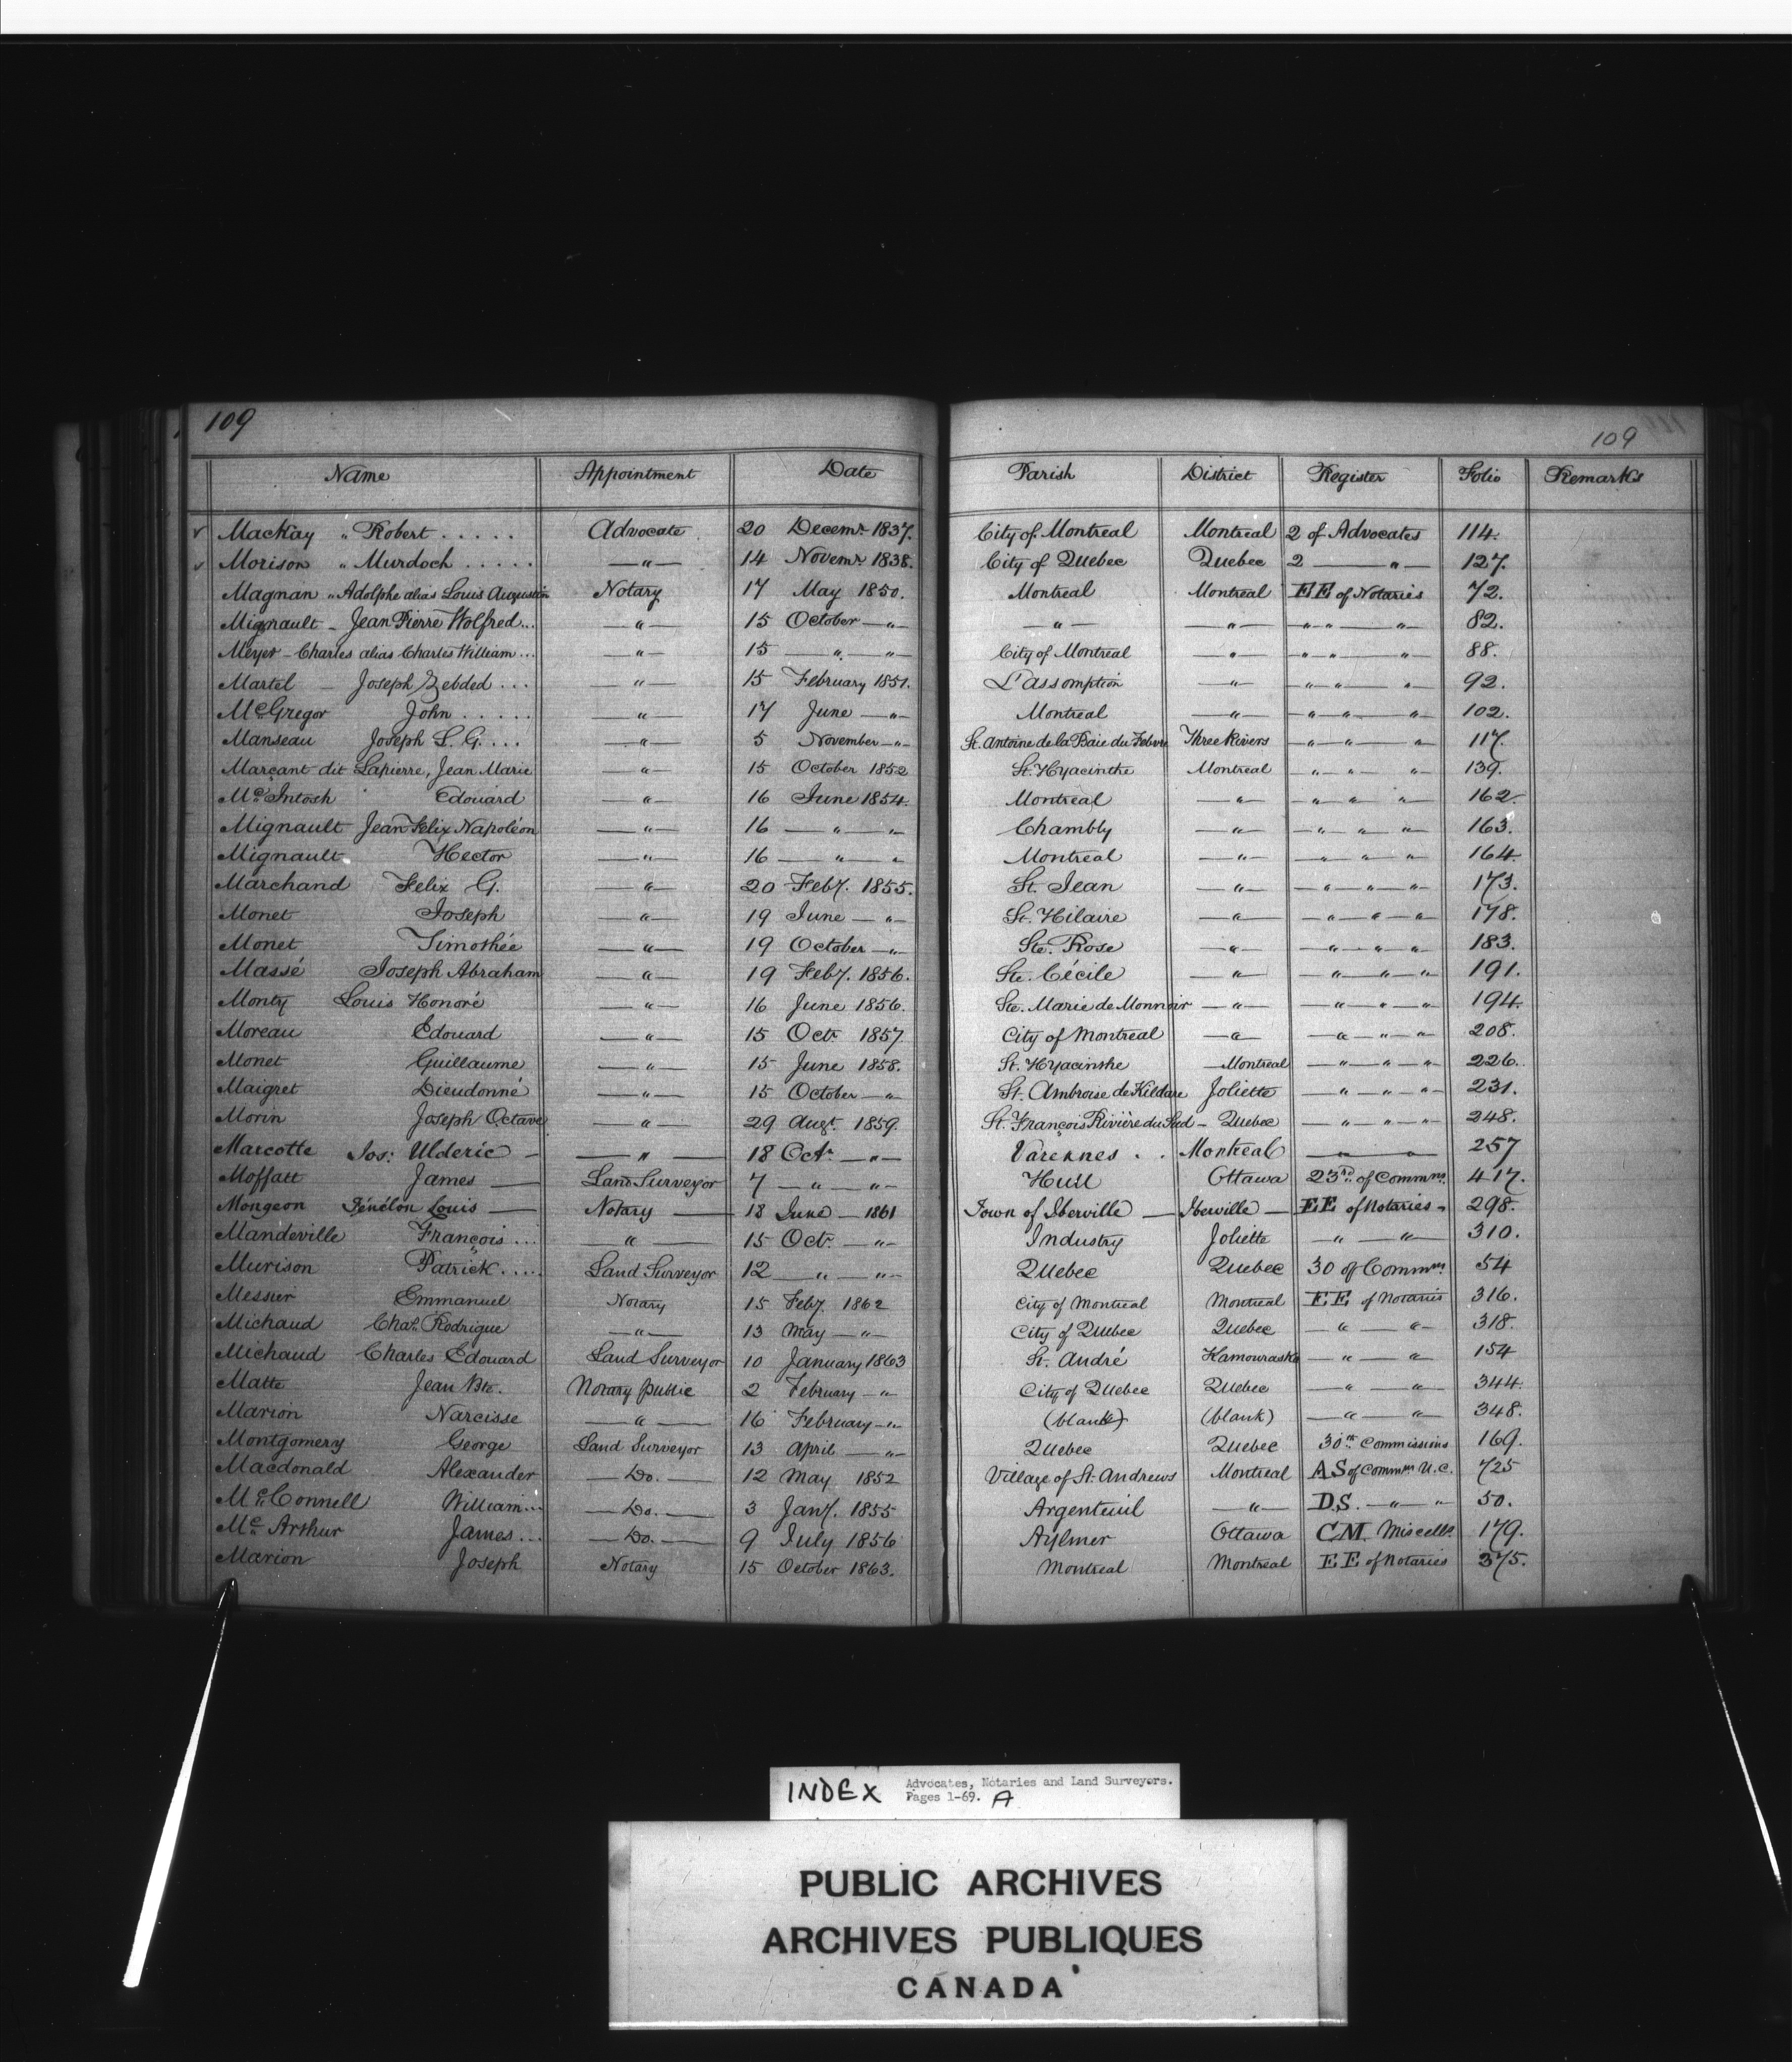 109
109
Name Appointment Date Parish District Register Folio Remarks
✓ MacKay „ Robert . . . . . Advocate 20 Decemr. 1837. City of Montreal Montreal 2 of Advocates 114.
✓ Morison „ Murdoch . . . . . —„— 14 Novemr. 1838. City of Quebec Quebec 2 —„— 127.
Magnan „ Adolphe alias Louis Augustin Notary 17 May 1850. Montreal Montreal EE of Notaries 72.
Mignault – Jean Pierre Wolfred... —„— 15 October —„— —„— —„— —„—„— —„— 82.
Meyer – Charles alias Charles William... —„— 15 —„— —„— City of Montreal —„— —„—„— —„— 88.
Martel — Joseph Zebded ... —„— 15 February 1851. L'assomption —„— —„—„— —„— 92.
McGregor John . . . . . —„— 17 June —„— Montreal —„— —„—„— —„— 102.
Manseau Joseph L. G. ... —„— 5 November —„— St. Antoine de la Baie du Febvre Three Rivers —„—„— —„— 117.
Marçant dit Lapierre, Jean Marie —„— 15 October 1852 St. Hyacinthe Montreal —„—„— —„— 139.
McIntosh Edouard —„— 16 June 1854. Montreal —„— —„—„—„— 162.
Mignault Jean Felix Napoléon —„— 16 —„— —„— Chambly —„— —„—„—„— 163.
Mignault. Hector —„— 16 —„— —„— Montreal —„— —„—„—„— 164.
Marchand Felix G. —„— 20 Feby. 1855. St. Jean —„— —„—„—„— 173.
Monet Joseph —„— 19 June —„— St. Hilaire —„— —„—„—„— 178.
Monet Timothée —„— 19 October —„— Ste. Rose —„— —„—„—„— 183.
Massé Joseph Abraham —„— 19 Feby. 1856. Ste. Cécile —„— —„—„—„— 191.
Monty Louis Honoré —„— 16 June 1856. Ste. Marie de Monnoir —„— —„—„—„— 194.
Moreau Edouard —„— 15 Octr. 1857. City of Montreal —„— —„—„—„— 208.
Monet Guillaume —„— 15 June 1858. St. Hyacinthe —Montreal —„—„—„— 226.
Maigret Dieudonné —„— 15 October —„— St. Ambroise de Kildare Joliette —„—„—„— 231.
Morin Joseph Octave —„— 29 Augt. 1859. St. François Rivière du Sud – Quebec —„—„—„— 248.
Marcotte Jos: Ulderic — —„— 18 Octr. —„— Varennes . . Montreal —„—„— 257
Moffatt James — Land Surveyor 7 —„— —„— Hull Ottawa 23rd. of Commns. 417.
Mongeon Fénélon Louis — Notary — 18 June — 1861 Town of Iberville — Iberville — EE of Notaries – 298.
Mandeville François ... —„— 15 Octr. —„— Industry Joliette —„— „— 310.
Murison Patrick .... Land Surveyor 12 —„— —„— Quebec Quebec 30 of Commns. 54
Messier Emmanuel Notary 15 Feby. 1862 City of Montreal Montreal EE of Notaries 316.
Michaud Chas. Rodrigue —„— 13 May —„— City of Quebec Quebec —„— „— 318.
Michaud Charles Edouard Land Surveyor 10 January 1863 St. André Kamouraska —„— „— 154
Matte Jean Bte. Notary public 2 February —„— City of Quebec Quebec —„— „— 344.
Marion Narcisse —„— 16 February —„— (blank) (blank) —„— „— 348.
Montgomery George Land Surveyor 13 April —„— Quebec Quebec 30th Commissions 169.
Macdonald Alexander —Do.— 12 May 1852 Village of St. Andrews Montreal AS of Commns U.C. 725
McConnell William... —Do.— 3 Jany. 1855 Argenteuil —„— D.S. —„— „ 50.
McArthur James ... —Do.— 9 July 1856 Aylmer Ottawa CM. Miscells. 179.
Marion Joseph Notary 15 October 1863. Montreal Montreal EE of Notaries 375.
INDEX Advocates, Notaries and Land Surveyors.
Pages 1-69. A
PUBLIC ARCHIVES
ARCHIVES PUBLIQUES
CANADA